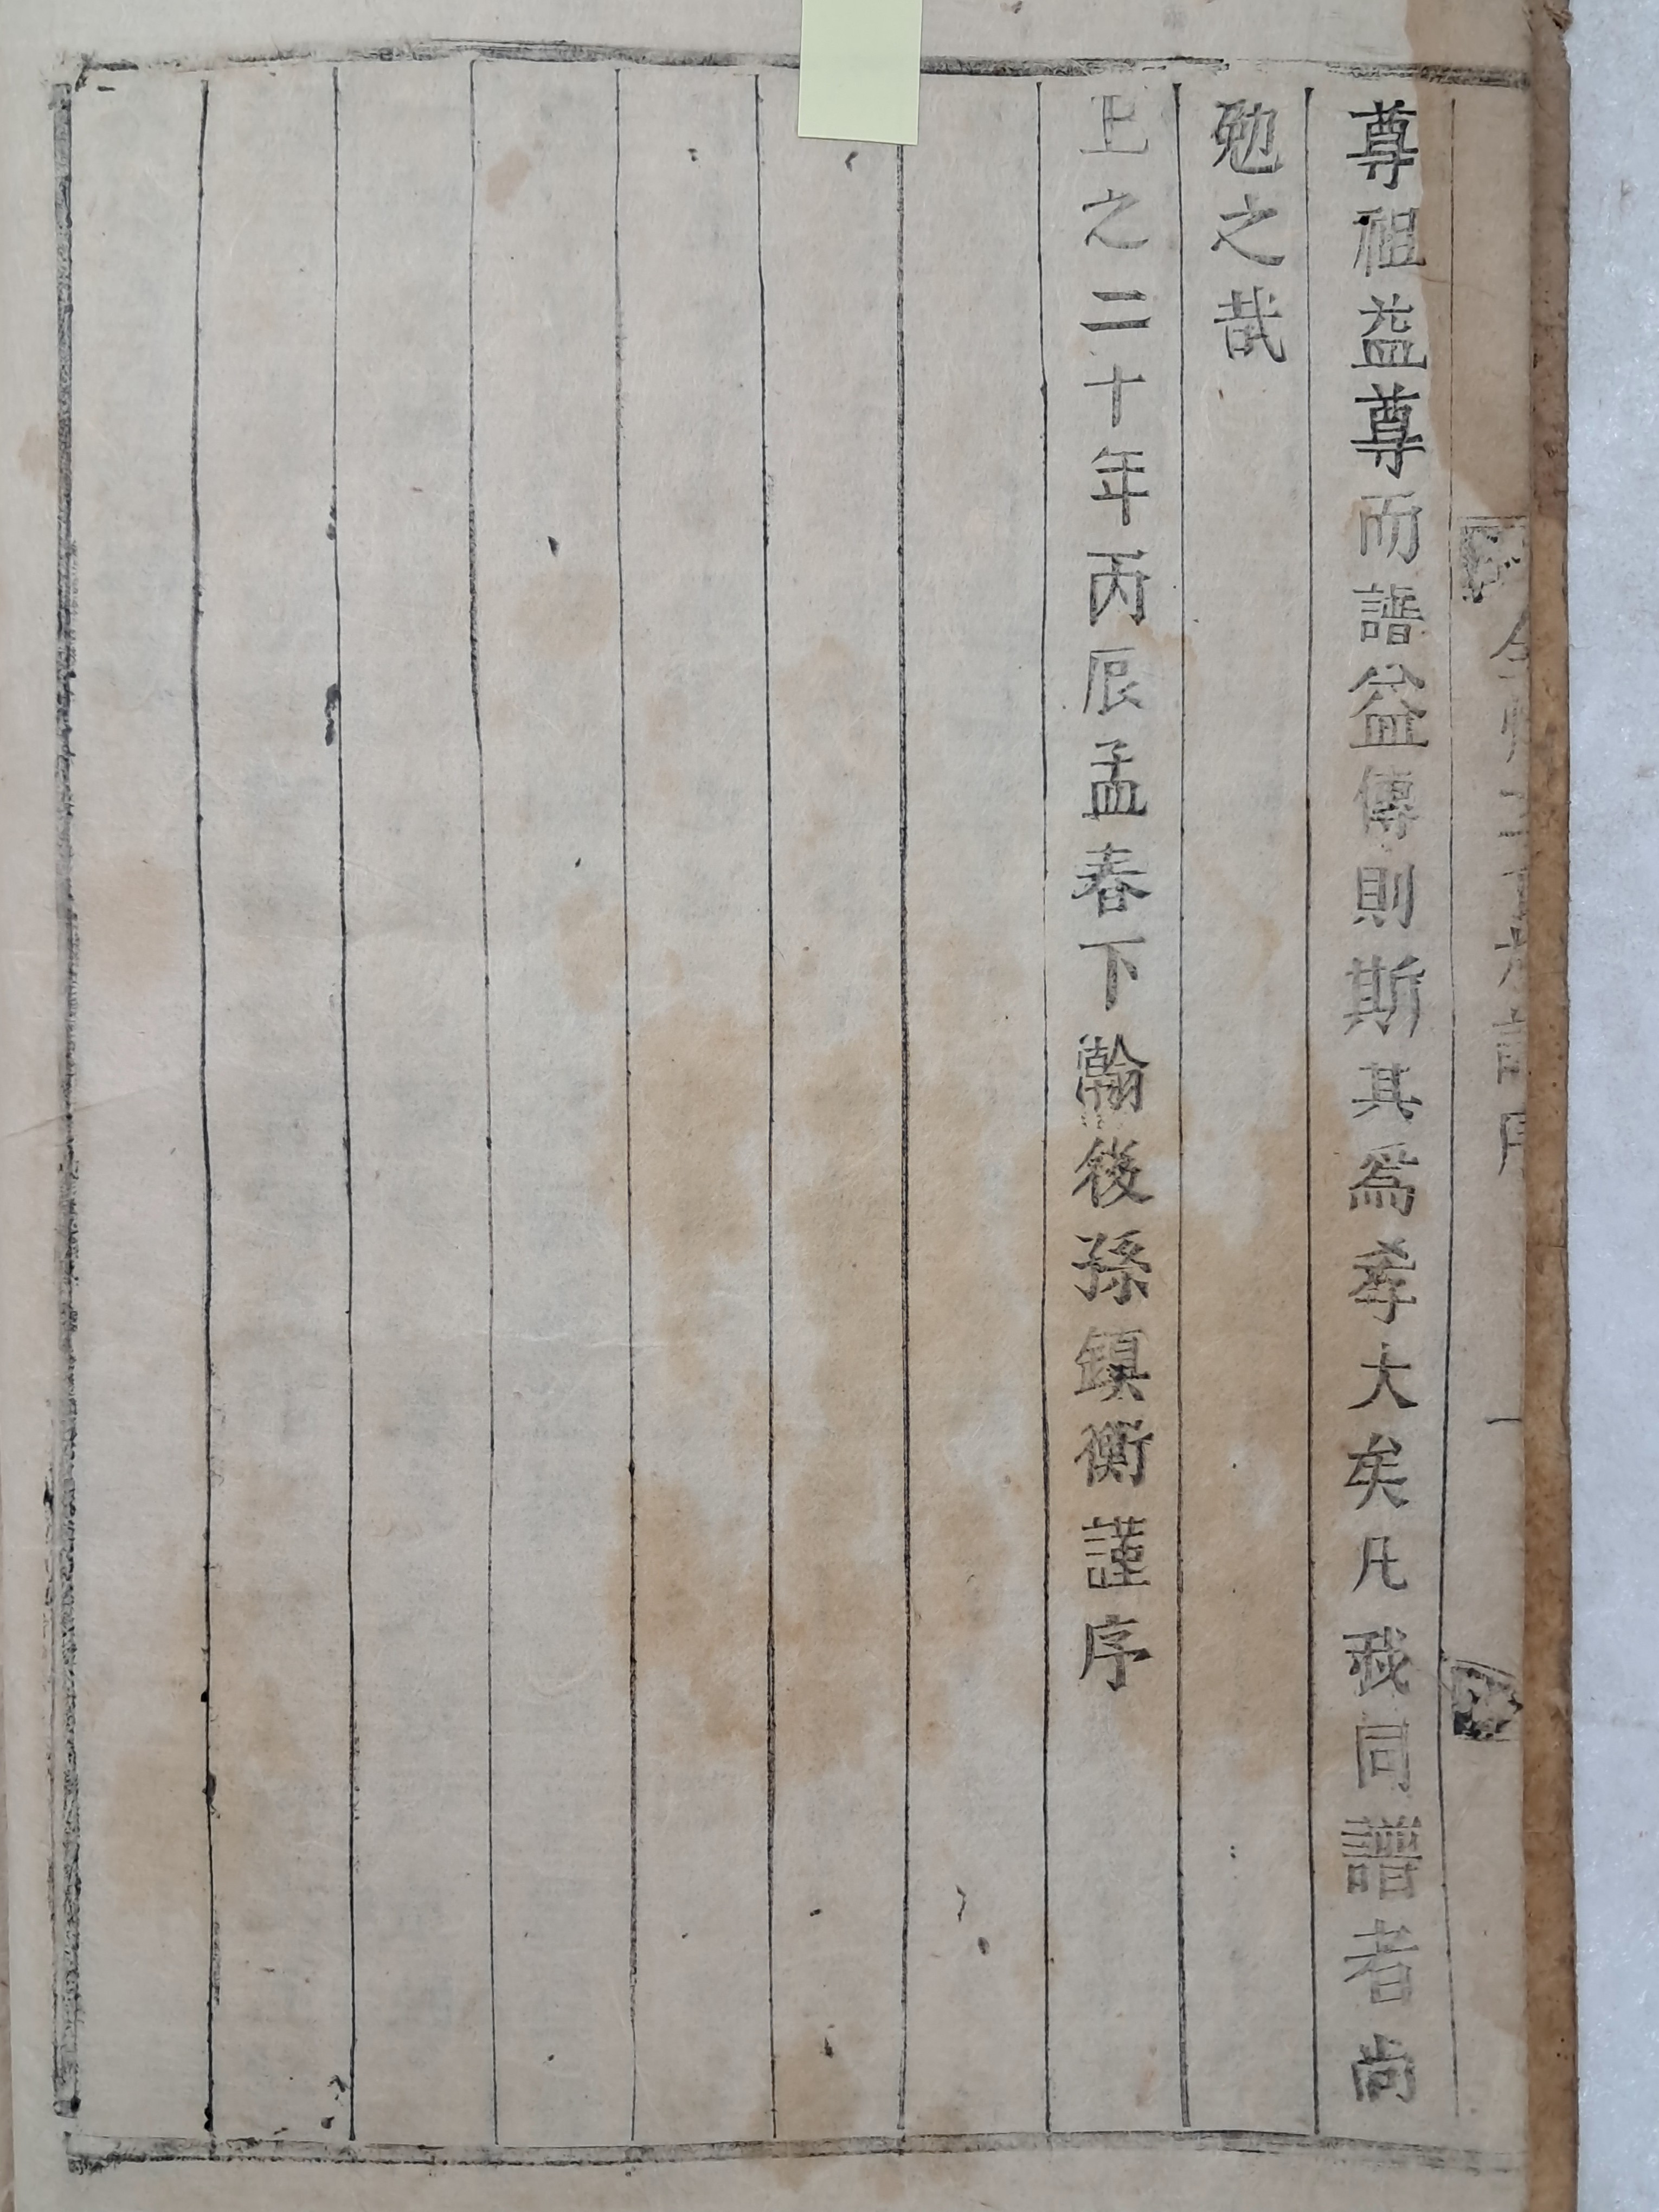 尊祖益尊而譜益傳則斯其爲孝大矣凡我同譜者尚
勉之哉
上之二十年丙辰孟春下澣後孫鎮衡謹序